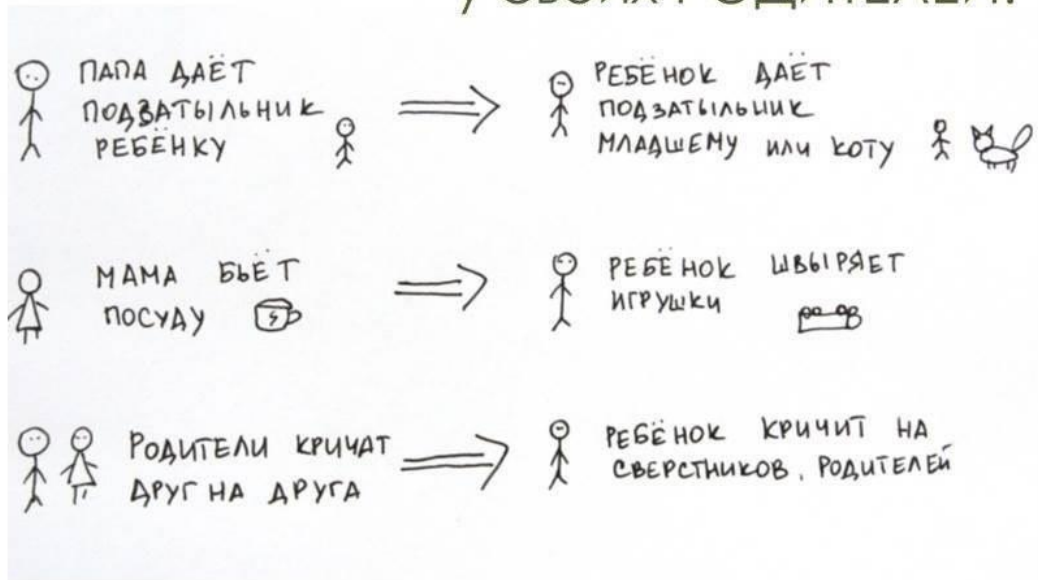 У СВОИХ РОДИТЕЛЕЙ.
ПАПА ДАЁТ
ПОДЗАТЫЛЬНИК
РЕБЁНКУ
РЕБЁНОК ДАЁТ
ПОДЗАТЫЛЬНИК
МЛАДШЕМУ ИЛИ КОТУ
МАМА БЬЁТ
ПОСУДУ
РЕБЁНОК ШВЫРЯЕТ
ИГРУШКИ
РОДИТЕЛИ КРИЧАТ
ДРУГ НА ДРУГА
РЕБЁНОК КРИЧИТ НА
СВЕРСТНИКОВ, РОДИТЕЛЕЙ